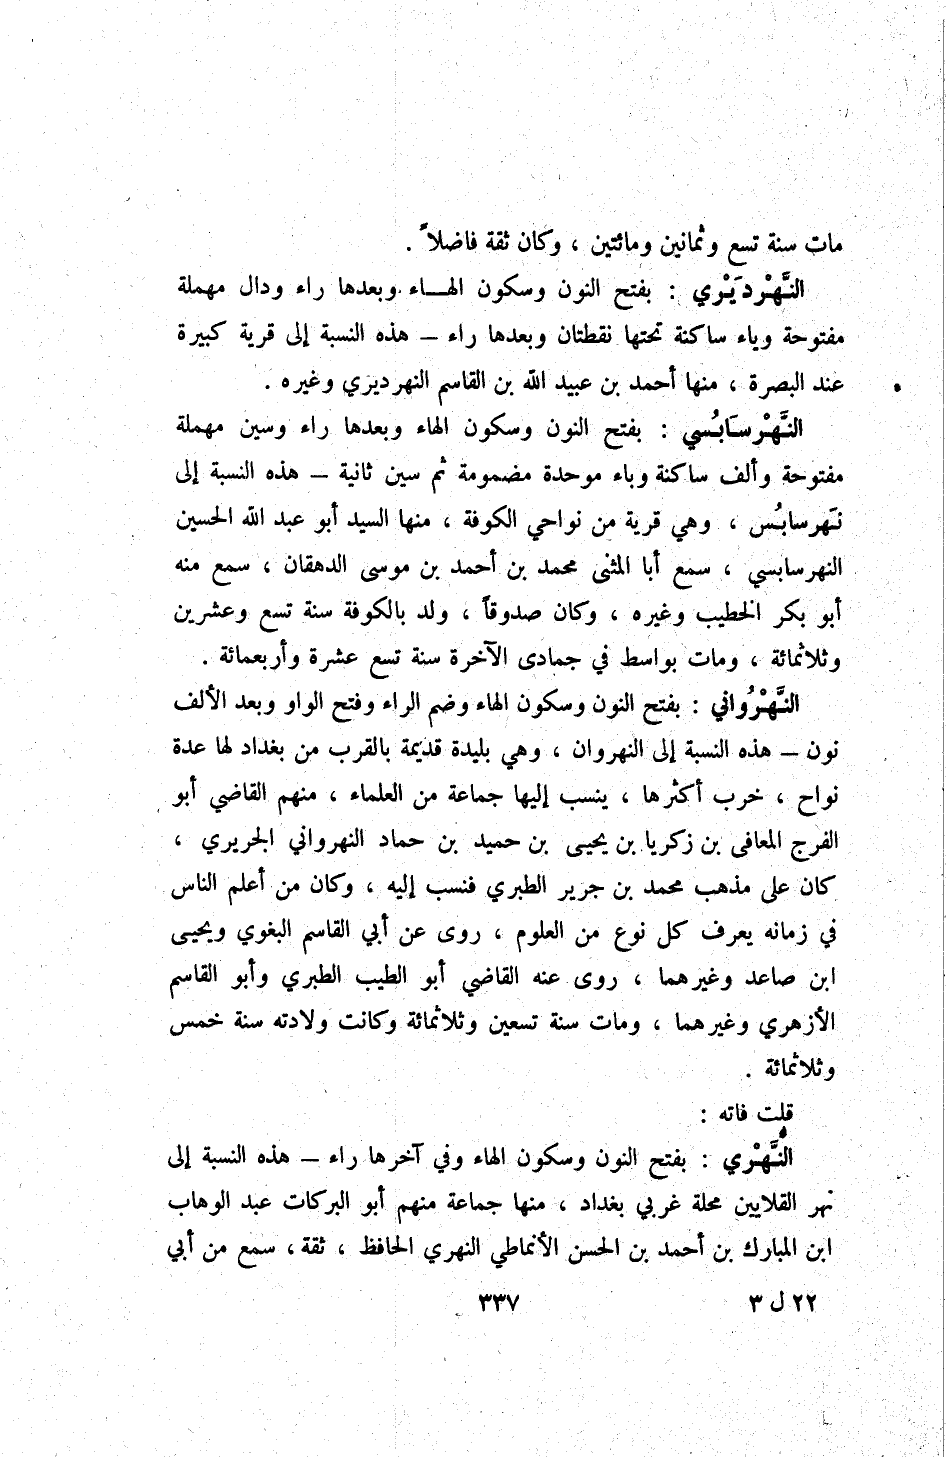 مات سنة تسع وثمانين ومائتين ، وكان ثقة فاضلاً .
النَّهْردَيْري : بفتح النون وسكون الهـاء وبعدها راء ودال مهملة
مفتوحة وياء ساكنة تحتها نقطتان وبعدها راء – هذه النسبة إلى قرية كبيرة
عند البصرة ، منها أحمد بن عبيد الله بن القاسم النهرديري وغيره .
النَّهْرسَابُسي : بفتح النون وسكون الهاء وبعدها راء وسين مهملة
مفتوحة وألف ساكنة وباء موحدة مضمومة ثم سين ثانية – هذه النسبة إلى
نَهرسابُس ، وهي قرية من نواحي الكوفة ، منها السيد أبو عبد الله الحسين
النهرسابسي ، سمع أبا المثنى محمد بن أحمد بن موسى الدهقان ، سمع منه
أبو بكر الخطيب وغيره ، وكان صدوقاً ، ولد بالكوفة سنة تسع وعشرين
وثلاثمائة ، ومات بواسط في جمادى الآخرة سنة تسع عشرة وأربعمائة .
النَّهْرُواني : بفتح النون وسكون الهاء وضم الراء وفتح الواو وبعد الألف
نون – هذه النسبة إلى النهروان ، وهي بليدة قديمة بالقرب من بغداد لها عدة
نواح ، خرب أكثرها ، ينسب إليها جماعة من العلماء ، منهم القاضي أبو
الفرج المعافى بن زكريا بن يحيى بن حميد بن حماد النهرواني الجريري ،
كان على مذهب محمد بن جرير الطبري فنسب إليه ، وكان من أعلم الناس
في زمانه يعرف كل نوع من العلوم ، روى عن أبي القاسم البغوي ويحيى
ابن صاعد وغيرهما ، روى عنه القاضي أبو الطيب الطبري وأبو القاسم
الأزهري وغيرهما ، ومات سنة تسعين وثلاثمائة وكانت ولادته سنة خمس
وثلاثمائة .
قلت فاته :
النَّهْري : بفتح النون وسكون الهاء وفي آخرها راء – هذه النسبة إلى
نهر القلايين محلة غربي بغداد ، منها جماعة منهم أبو البركات عبد الوهاب
ابن المبارك بن أحمد بن الحسن الأنماطي النهري الحافظ ، ثقة ، سمع من أبي
٢٢ ل ٣ ٣٣٧